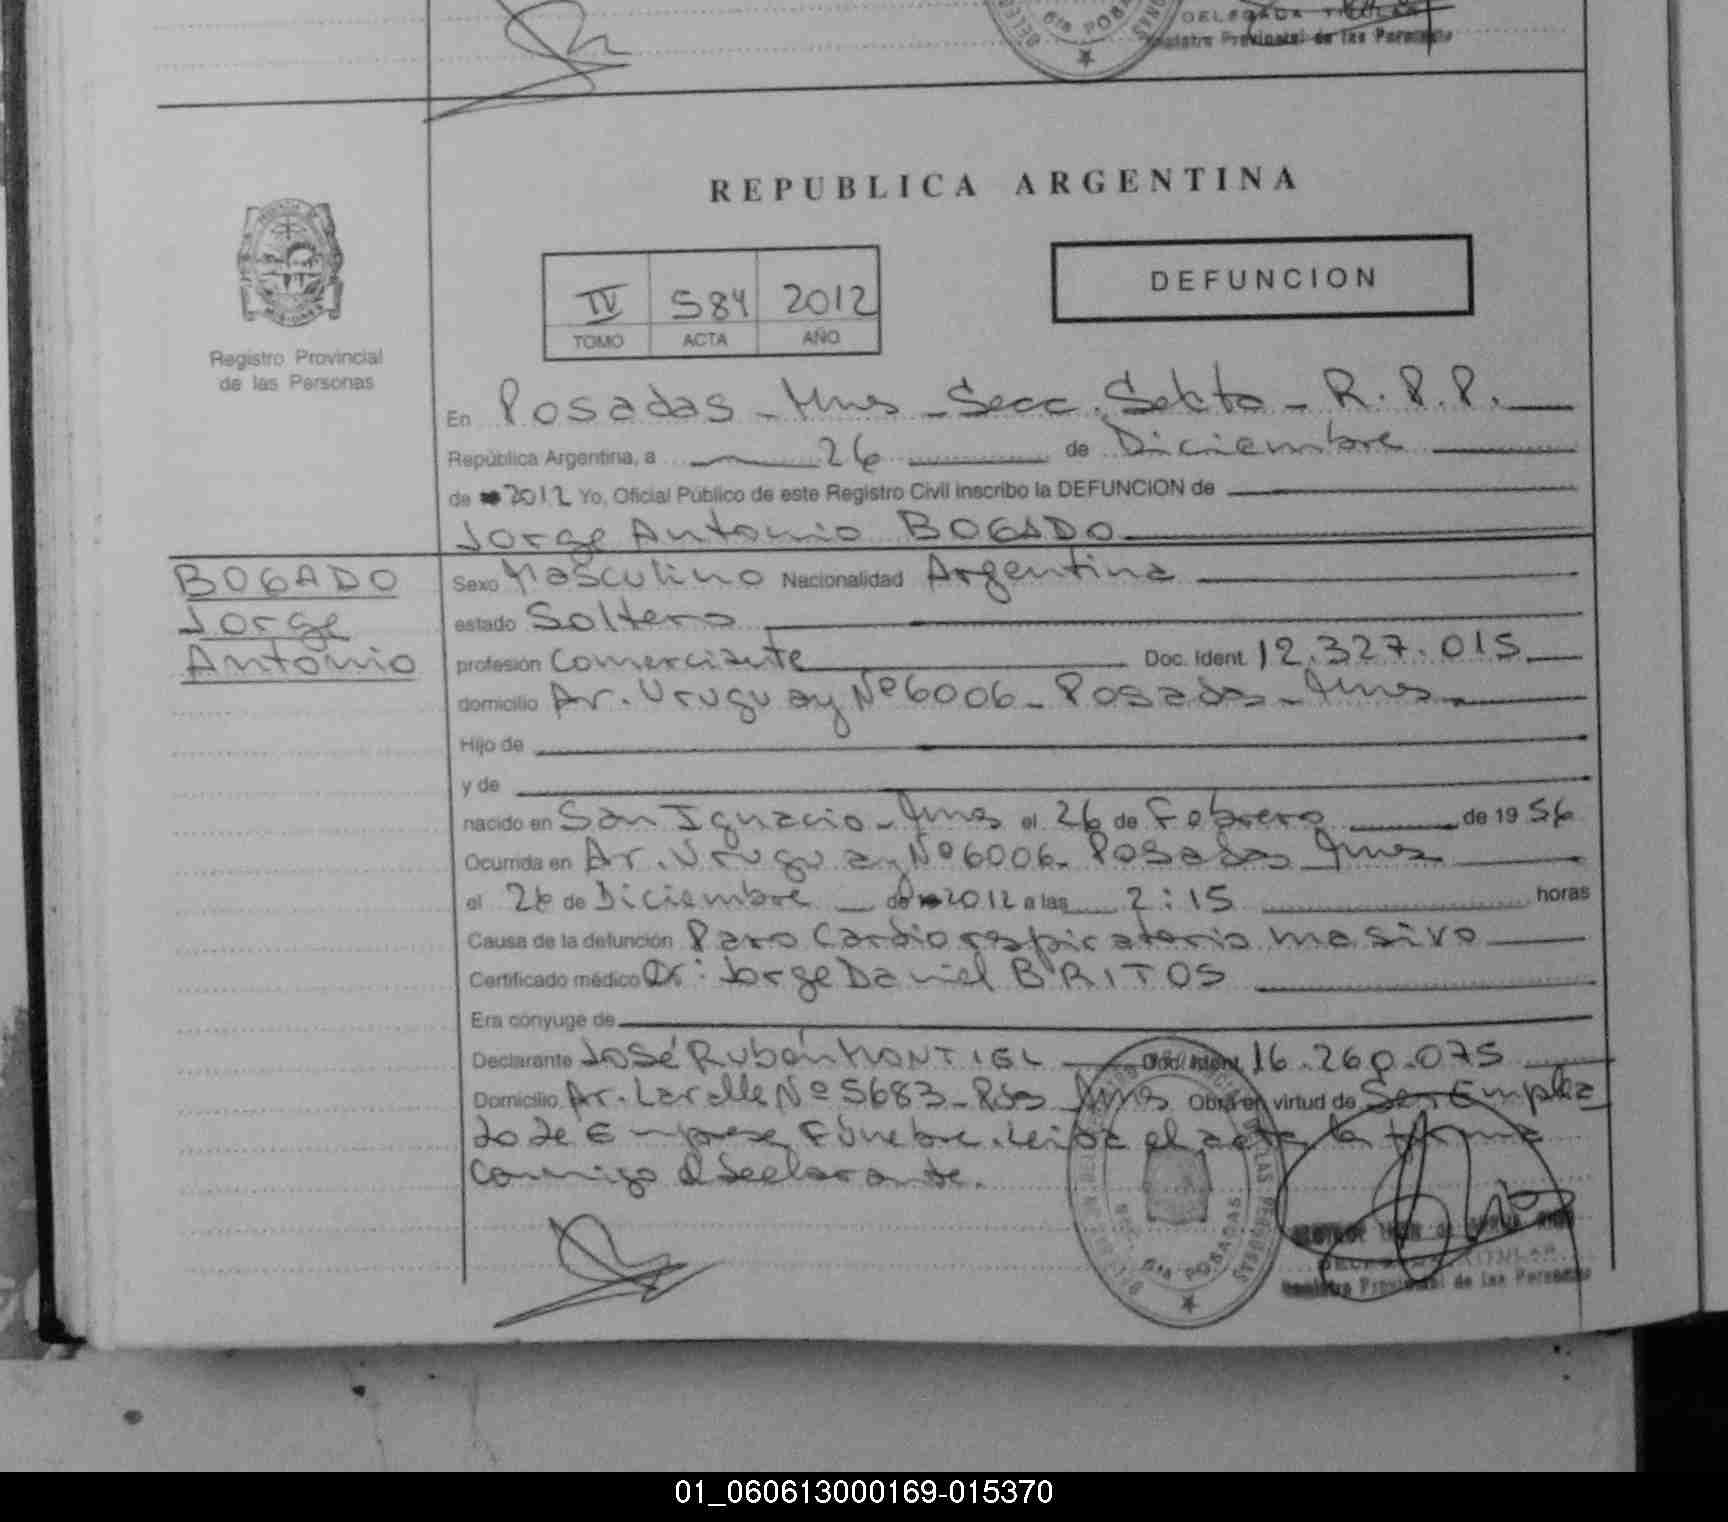 DELEGADA TITULAR
Registro Provincial de las Personas
6ta POSADAS
REPUBLICA ARGENTINA
IV 584 2012
TOMO ACTA AÑO
DEFUNCION
Registro Provincial
de las Personas
En Posadas - Mnes - Secc. Sexta - R.P.P.
República Argentina, a 26 de Diciembre
de 2012 Yo, Oficial Público de este Registro Civil inscribo la DEFUNCION de
Jorge Antonio BOGADO
BOGADO
Jorge
Antonio
Sexo Masculino Nacionalidad Argentina
estado Soltero
profesión Comerciante Doc. Ident. 12.327.015
domicilio Av. Uruguay Nº 6006 - Posadas - Mnes
Hijo de
y de
nacido en San Ignacio - Mnes el 26 de Febrero de 1956
Ocurrida en Av. Uruguay Nº 6006 - Posadas Mnes
el 26 de Diciembre de 2012 a las 2:15 horas
Causa de la defunción Paro Cardiorespiratorio masivo
Certificado médico Dr: Jorge Daniel BRITOS
Era cónyuge de
Declarante José Rubén MONTIEL Doc. Ident. 16.260.075
Domicilio Av. Lavalle Nº 5683 - Pdas Mnes Obra en virtud de Ser Emplea
do de Empresa Fúnebre. Leida el acta la firma
conmigo el declarante.
6ta POSADAS
Registro Provincial de las Personas
01_060613000169-015370